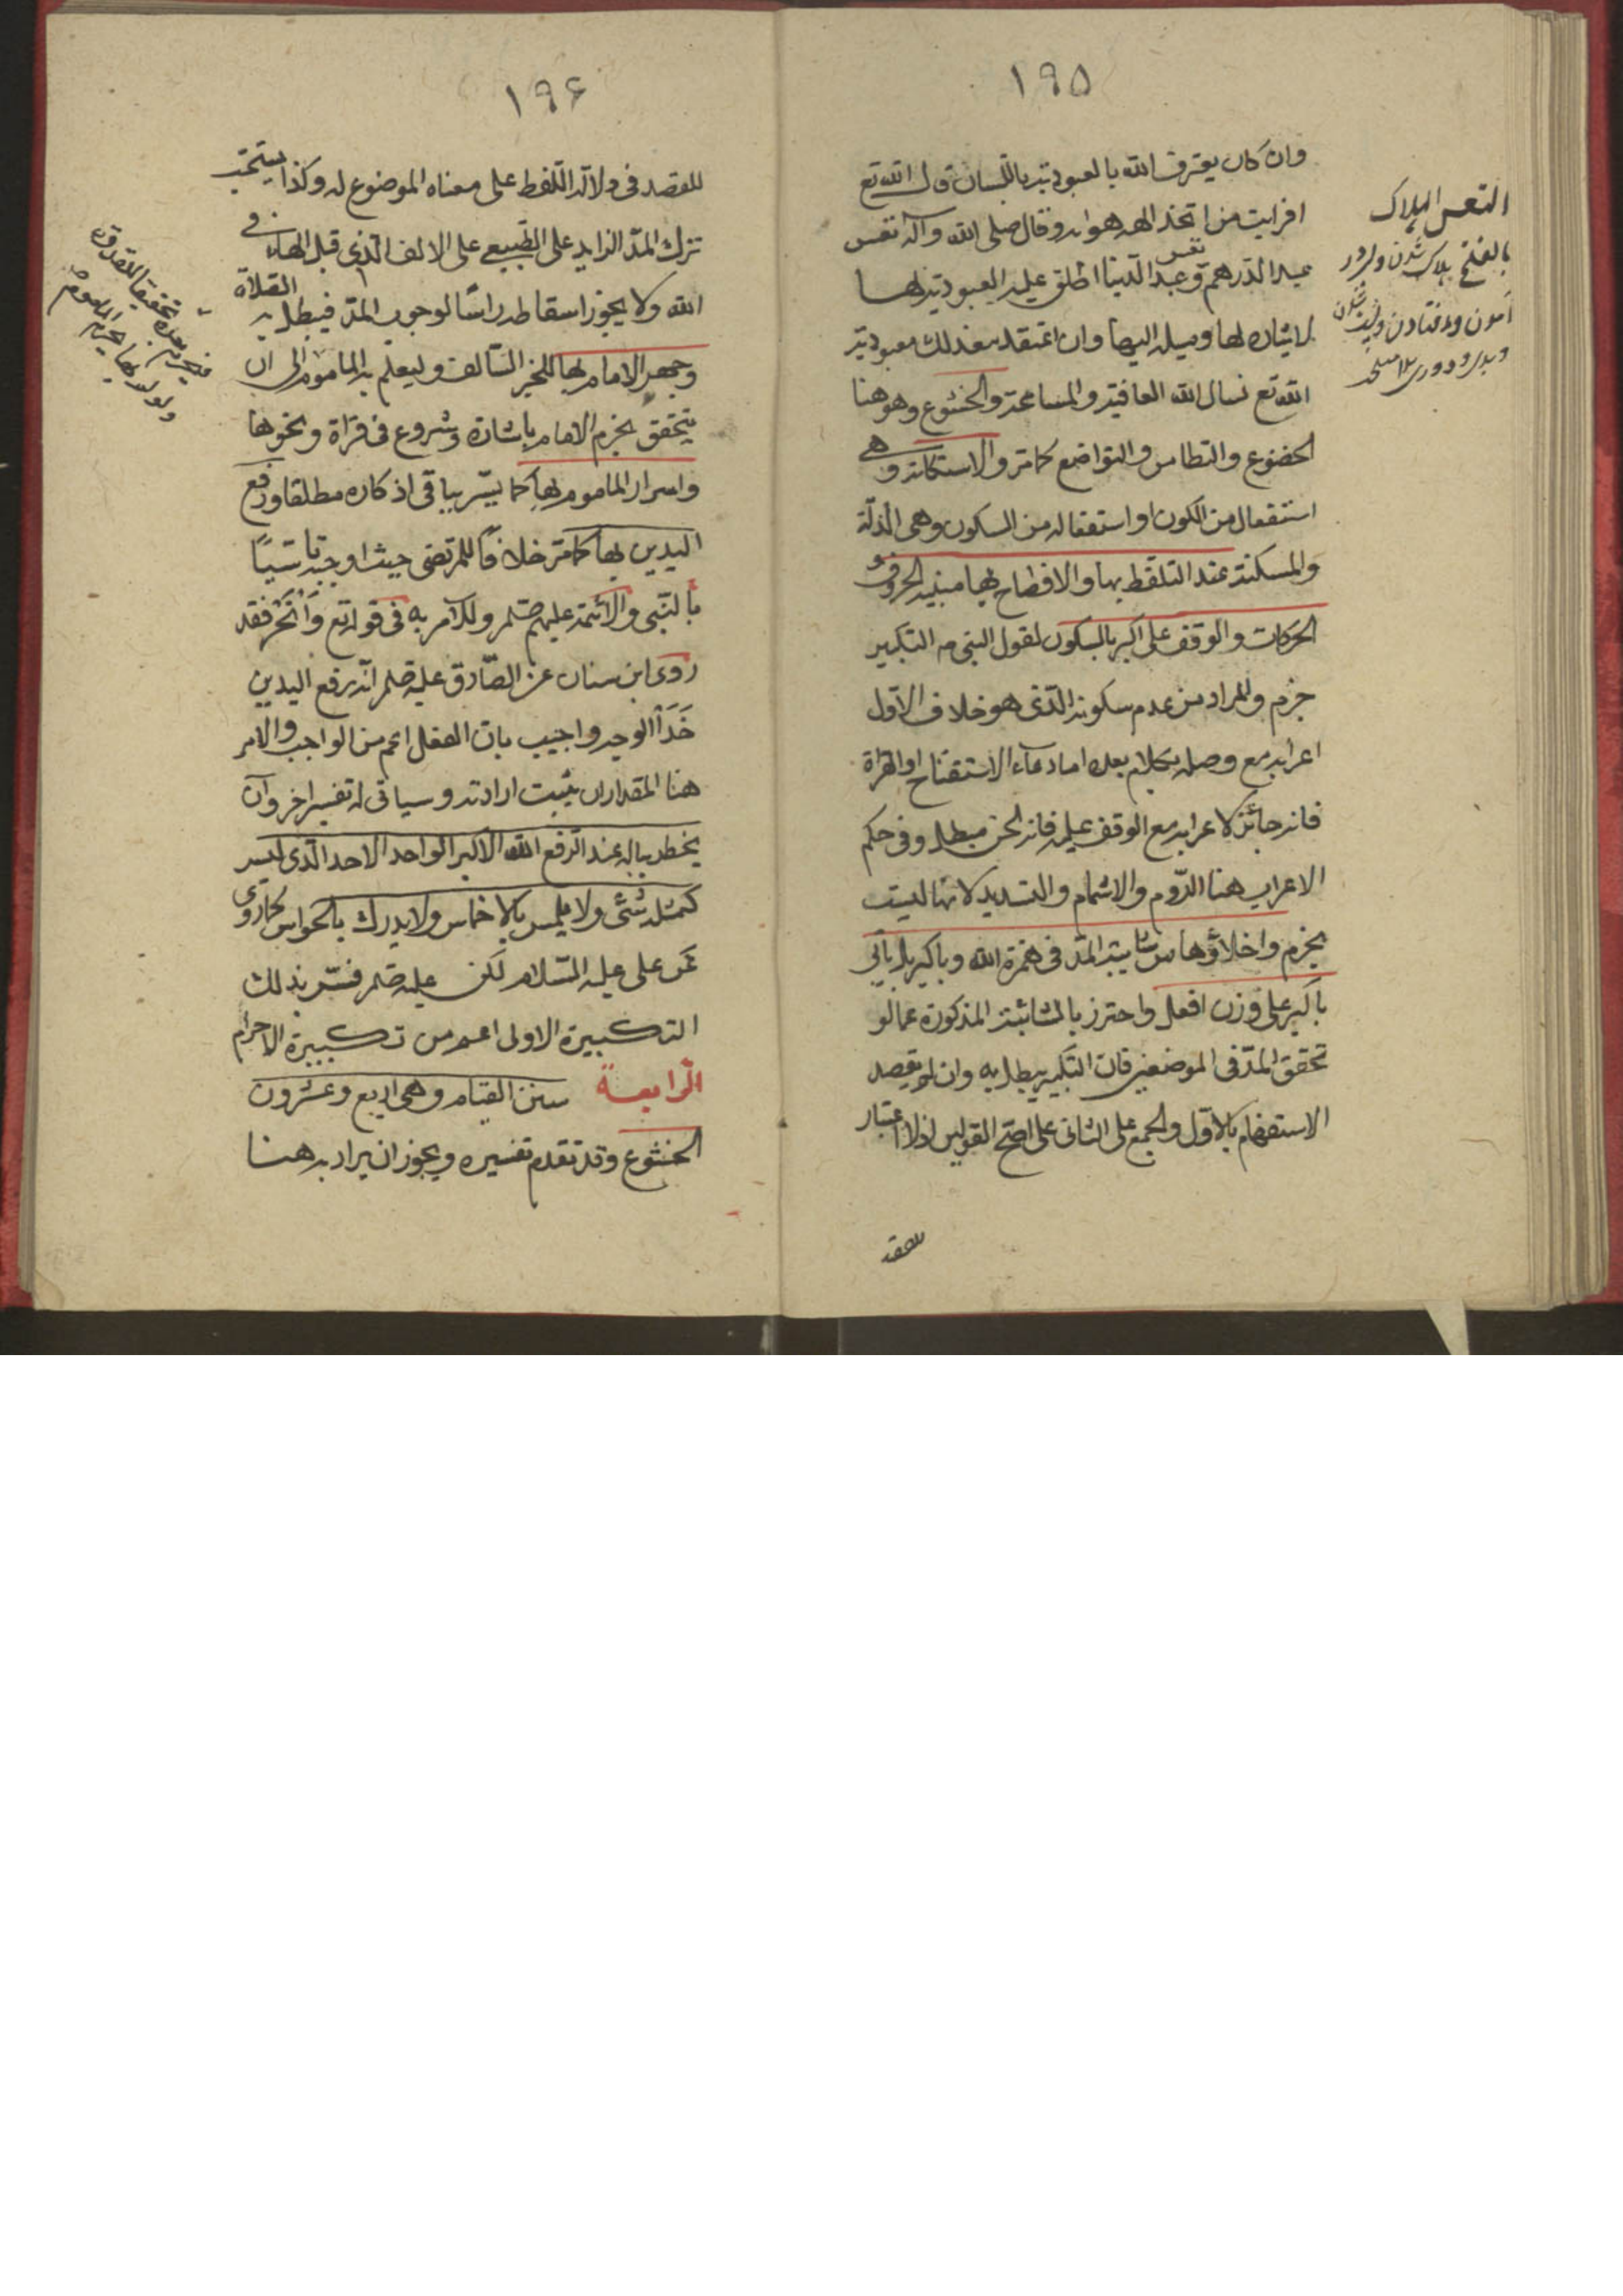 ١٩٥
وان كان يعترف الله بالعبودية باللسان قال الله تع
افرايت من اتخذ الهه هواه وقال صلى الله وآله تعس
عبد الدرهم و تعس عبد الدينا اطلق عليه العبودية لها
لايثاره لها وميله اليها وان اعتقد مع ذلك معبودية
الله تع نسال الله العافية والمسامحة والخشوع وهو هنا
الخضوع والتطامن والتواضع كما مر والاستكانة وهى
استفعال من الكون او استفعاله من السكون وهى الذلة
والمسكنة عند التلفظ بها والافصاح بها مبينة الحروف و
الحركات والوقف على اكبر بالسكون لقول النبى ص التكبير
جزم والمراد من عدم سكونه الذى هو خلاف الاول
اعرابه مع وصله بكلام بعده اما دعاء الاستفتاح او القراة
فانه جائز لا اعرابه مع الوقف عليه فانه لحن مبطل وفى حكم
الاعراب هنا الروم والاشمام والتشديد لانها ليست
بجزم واخلاؤها من شايبة المد فى همزة الله وباكبر بل ياتى
باكبر على وزن افعل واحترز بالشائبة المذكورة عما لو
تحقق المد فى الموضعين فان التكبير يبطل به وان لم يقصد
الاستفهام بالاول والجمع على الثانى على اصح القولين اذ لا اعتبار
للقصد
التعس الهلاك
بالفتح هلاك شدن و برو در
آمدن و افتادن
و بدى و دورى
١٩۶
للقصد فى دلالة اللفظ على معناه الموضوع له وكذا يستحب
ترك المد الزايد على الطبيعى على الالف الذى قبل الهاء فى
الله ولا يجوز اسقاطه راسا لوجوب المد فيبطل به الصلاة
وجهر الامام بها للخبر السالف وليعلم به الماموم الى ان
يتحقق بجزم الامام باشارة وشروع فى قراة ونحوها
واسرار الماموم بها كما يسر بباقى اذكاره مطلقا ورفع
اليدين بها كما مر خلافا للمرتضى حيث اوجبه تاسيا
بالنبى والائمة عليهم صلم وللامر به فى قوله تع وانحر فقد
روى ابن سنان عن الصادق عليه صلم انه رفع اليدين
حذاء الوجه واجيب بان الفعل اعم من الواجب والامر
هنا المقدار ان يثبت ارادته وسياتى له تفسير اخر وان
يخطر بباله عند الرفع الله الاكبر الواحد الاحد الذى ليس
كمثله شئ ولا يلمس بالاخماس ولا يدرك بالحواس كما روى
عن على عليه السلام لكن عليه صلم فسر بذلك
التكبيرة الاولى اعم من تكبيرة الاحرام
الرابعة سنن القيام وهى اربع وعشرون
الخشوع وقد تقدم تفسيره ويجوز ان يراد به هنا